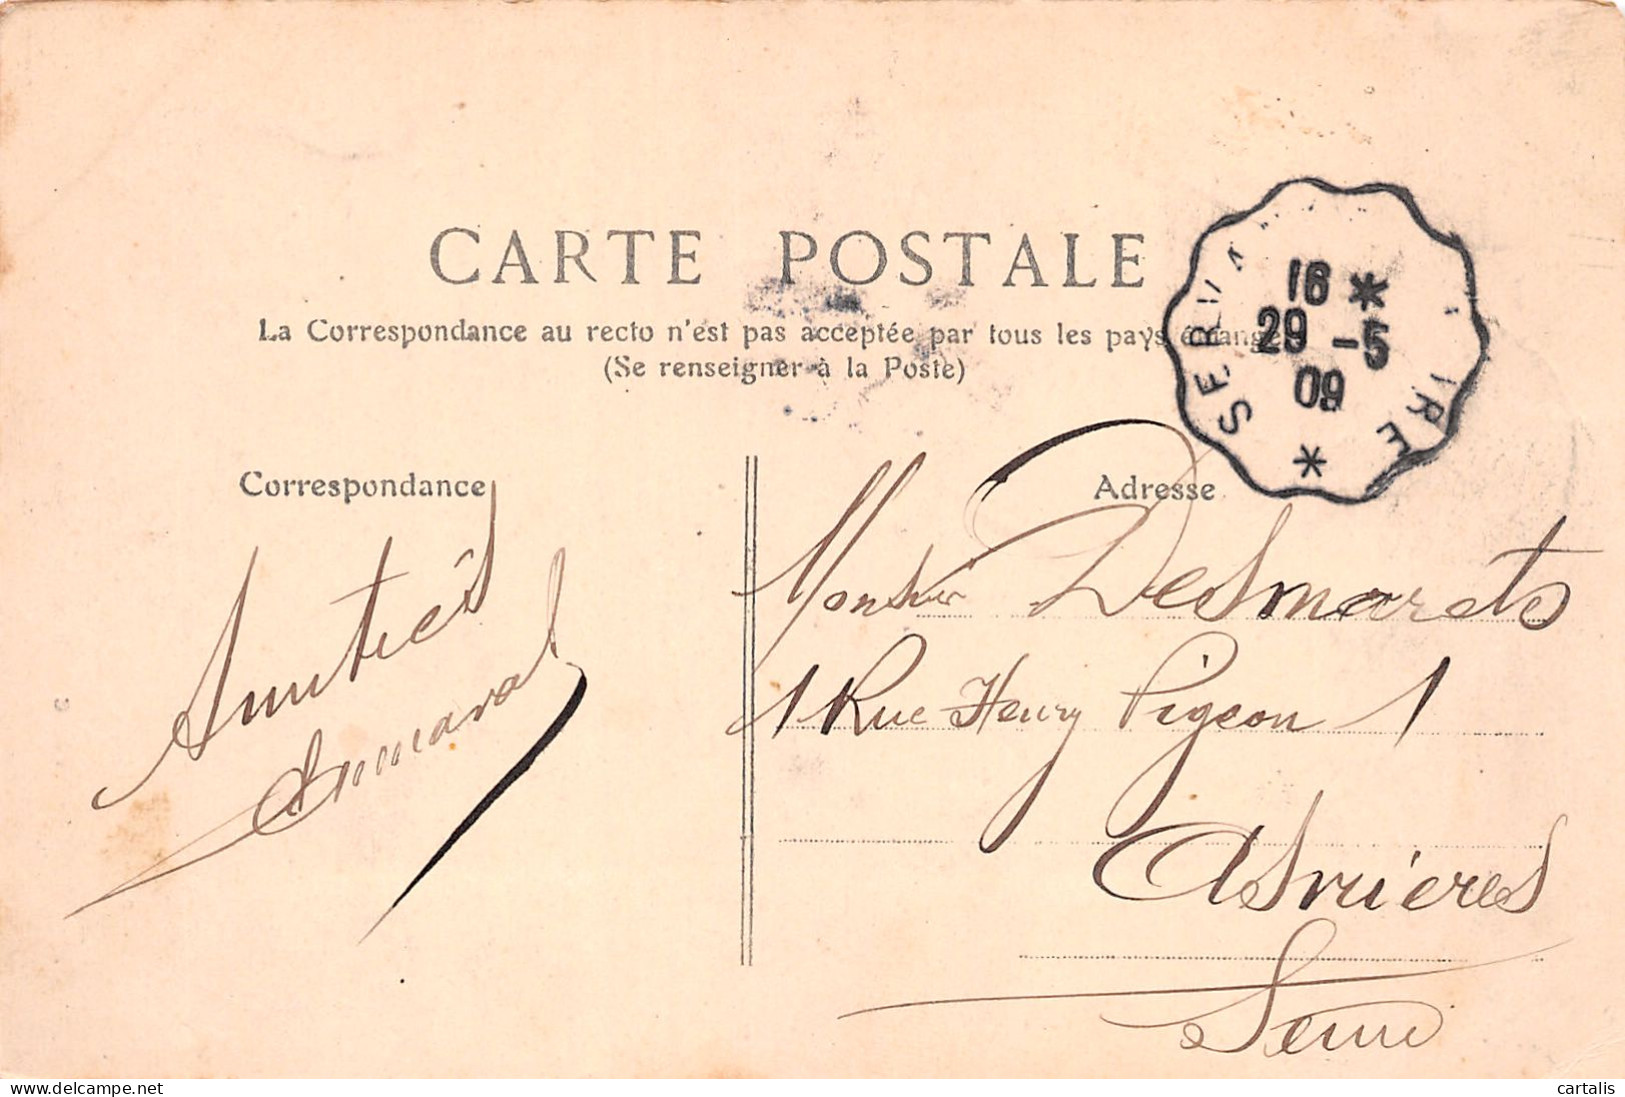 CARTE POSTALE
La Correspondance au recto n'est pas acceptée par tous les pays étrangers
(Se renseigner à la Poste)
16 *
29 -5
09
*
Correspondance
Adresse
Amitiés
Monsieur Desmarets
1 Rue Henry Pigeon 1
Asnières
Seine
delcampe.net
cartalis